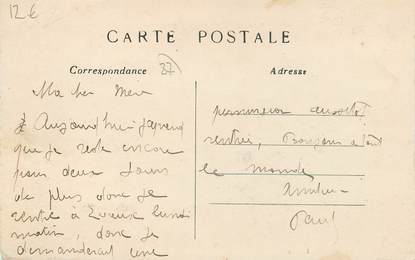 12 €
CARTE POSTALE
Correspondance
37
Adresse
Ma cher
Aujourd'hui j'apprend
que je reste encore
pour deux jours
de plus donc je
rentre à Evreux lundi
matin, donc je
demanderait une
permission aussitot
rentrer, Bonjour a tout
le monde
Paul